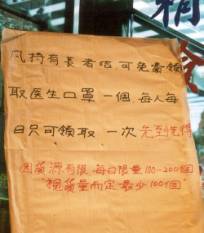 凡持有長者咭,可免費領
取医生口罩一個,每人每
日只可領取一次 先到先得
因貨源有限,每日限量100-200個
"視貨量而定,最少100個"